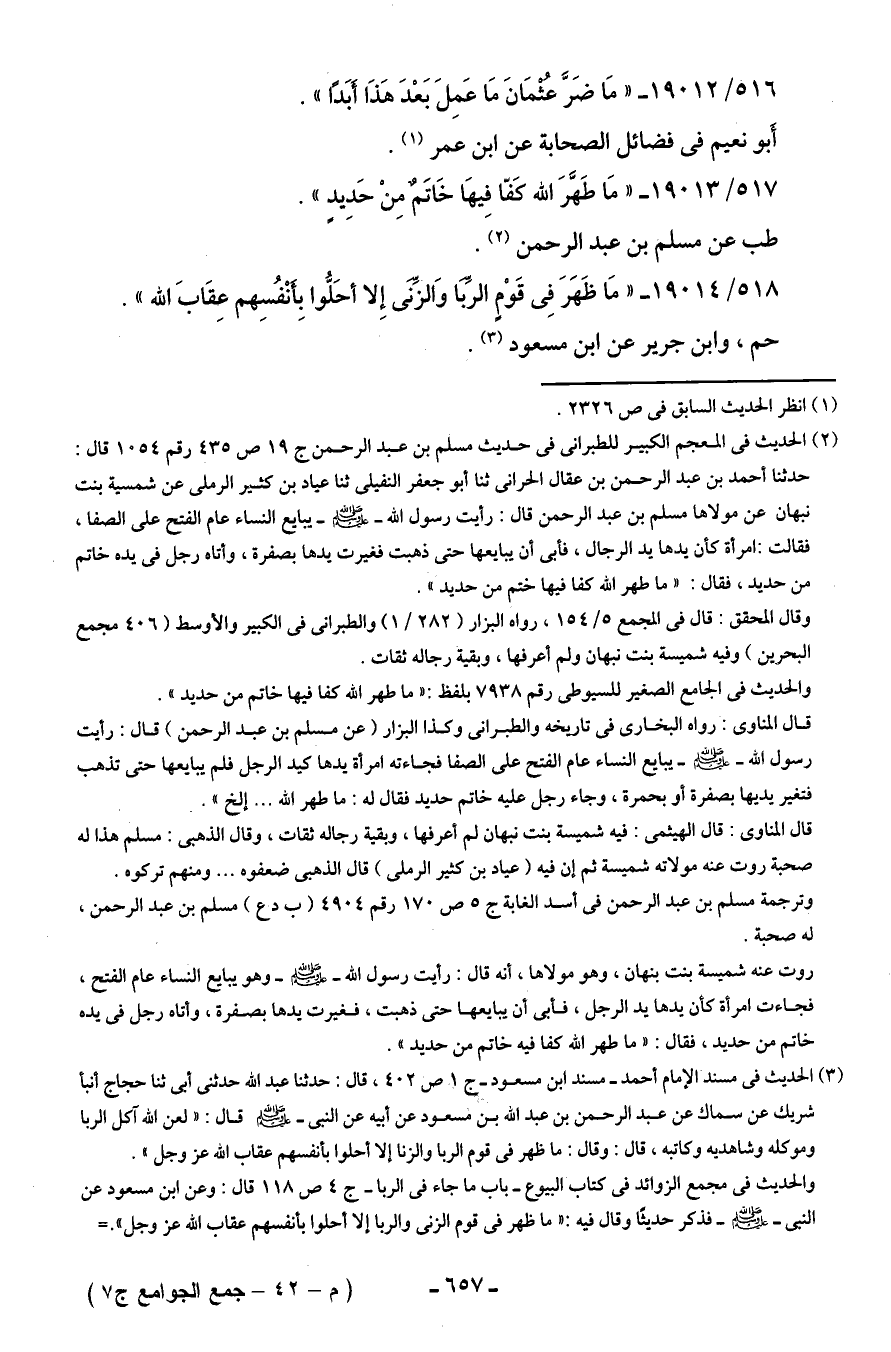 ٥١٦/ ١٩٠١٢ـ « مَا ضَرَّ عُثْمَانَ مَا عَمِلَ بَعْدَ هَذَا أَبَدًا » .
أبو نعيم فى فضائل الصحابة عن ابن عمر (١) .
٥١٧/ ١٩٠١٣ـ « مَا طَهَّرَ الله كَفّا فِيهَا خَاتَمٌ مِنْ حَدِيدٍ » .
طب عن مسلم بن عبد الرحمن (٢) .
٥١٨/ ١٩٠١٤ـ « مَا ظَهَرَ فِى قَوْمٍ الرِّبَا وَالزِّنَى إِلا أحَلُّوا بِأَنْفُسِهِم عِقَابَ الله » .
حم ، وابن جرير عن ابن مسعود (٣) .
(١) انظر الحديث السابق فى ص ٢٣٢٦ .
(٢) الحديث فى المعجم الكبير للطبرانى فى حديث مسلم بن عبد الرحمن ج ١٩ ص ٤٣٥ رقم ١٠٥٤ قال :
حدثنا أحمد بن عبد الرحمن بن عقال الحرانى ثنا أبو جعفر النفيلى ثنا عياد بن كثير الرملى عن شمسية بنت
نبهان عن مولاها مسلم بن عبد الرحمن قال : رأيت رسول الله ـ ﷺ ـ يبايع النساء عام الفتح على الصفا ،
فقالت :امرأة كأن يدها يد الرجال ، فأبى أن يبايعها حتى ذهبت فغيرت يدها بصفرة ، وأتاه رجل فى يده خاتم
من حديد ، فقال : « ما طهر الله كفا فيها ختم من حديد » .
وقال المحقق : قال فى المجمع ٥/ ١٥٤ ، رواه البزار ( ٢٨٢ / ١) والطبرانى فى الكبير والأوسط ( ٤٠٦ مجمع
البحرين ) وفيه شميسة بنت نبهان ولم أعرفها ، وبقية رجاله ثقات .
والحديث فى الجامع الصغير للسيوطى رقم ٧٩٣٨ بلفظ :« ما طهر الله كفا فيها خاتم من حديد » .
قال المناوى : رواه البخارى فى تاريخه والطبرانى وكذا البزار ( عن مسلم بن عبد الرحمن ) قال : رأيت
رسول الله ـ ﷺ ـ يبايع النساء عام الفتح على الصفا فجاءته امرأة يدها كيد الرجل فلم يبايعها حتى تذهب
فتغير يديها بصفرة أو بحمرة ، وجاء رجل عليه خاتم حديد فقال له : ما طهر الله ... إلخ » .
قال المناوى : قال الهيثمى : فيه شميسة بنت نبهان لم أعرفها ، وبقية رجاله ثقات ، وقال الذهبى : مسلم هذا له
صحبة روت عنه مولاته شميسة ثم إن فيه ( عياد بن كثير الرملى ) قال الذهبى ضعفوه ... ومنهم تركوه .
وترجمة مسلم بن عبد الرحمن فى أسد الغابة ج ٥ ص ١٧٠ رقم ٤٩٠٤ ( ب د ع ) مسلم بن عبد الرحمن ،
له صحبة .
روت عنه شميسة بنت بنهان ، وهو مولاها ، أنه قال : رأيت رسول الله ـ ﷺ ـ وهو يبايع النساء عام الفتح ،
فجاءت امرأة كأن يدها يد الرجل ، فأبى أن يبايعها حتى ذهبت ، فغيرت يدها بصفرة ، وأتاه رجل فى يده
خاتم من حديد ، فقال : « ما طهر الله كفا فيه خاتم من حديد » .
(٣) الحديث فى مسند الإمام أحمد ـ مسند ابن مسعود ـ ج ١ ص ٤٠٢ ، قال : حدثنا عبد الله حدثنى أبى ثنا حجاج أنبأ
شريك عن سماك عن عبد الرحمن بن عبد الله بن مسعود عن أبيه عن النبى ـ ﷺ قال : « لعن الله آكل الربا
وموكله وشاهديه وكاتبه ، قال : وقال : ما ظهر فى قوم الربا والزنا إلا أحلوا بأنفسهم عقاب الله عز وجل » .
والحديث فى مجمع الزوائد فى كتاب البيوع ـ باب ما جاء فى الربا ـ ج ٤ ص ١١٨ قال : وعن ابن مسعود عن
النبى ـ ﷺ ـ فذكر حديثًا وقال فيه :« ما ظهر فى قوم الزنى والربا إلا أحلوا بأنفسهم عقاب الله عز وجل».=
ـ ٦٥٧ ـ
( م – ٤٢ – جمع الجوامع ج٧ )